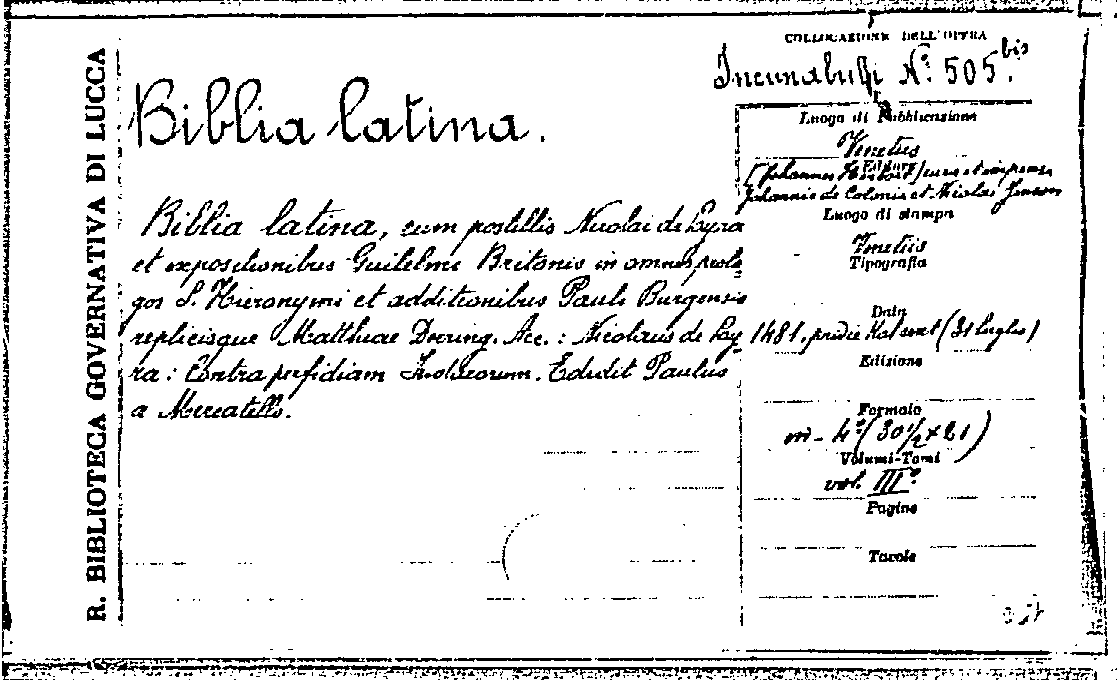 R. BIBLIOTECA GOVERNATIVA DI LUCCA
COLLOCAZIONE DELL'OPERA
Incunabuli N.° 505.bis
Biblia latina.
Biblia latina, cum postillis Nicolai de Lyra
et expositionibus Guilelmi Britonis in omnes prolo
gos S. Hieronymi et additionibus Pauli Burgensis
replicisque Matthiae Doering. Acc.: Nicolaus de Ly
ra: Contra perfidiam Iudaeorum. Edidit Paulus
a Mercatello.
Luogo di Pubblicazione
Venetiis
Editore
[Johannes Herbort] cura et impensis
Johannis de Colonia et Nicolai Jenson
Luogo di stampa
Venetiis
Tipografia
Data
1481, pridie Kal. (31 luglio)
Edizione
Formato
in-4° (30½×21)
Volumi-Tomi
vol. III°
Pagine
Tavole